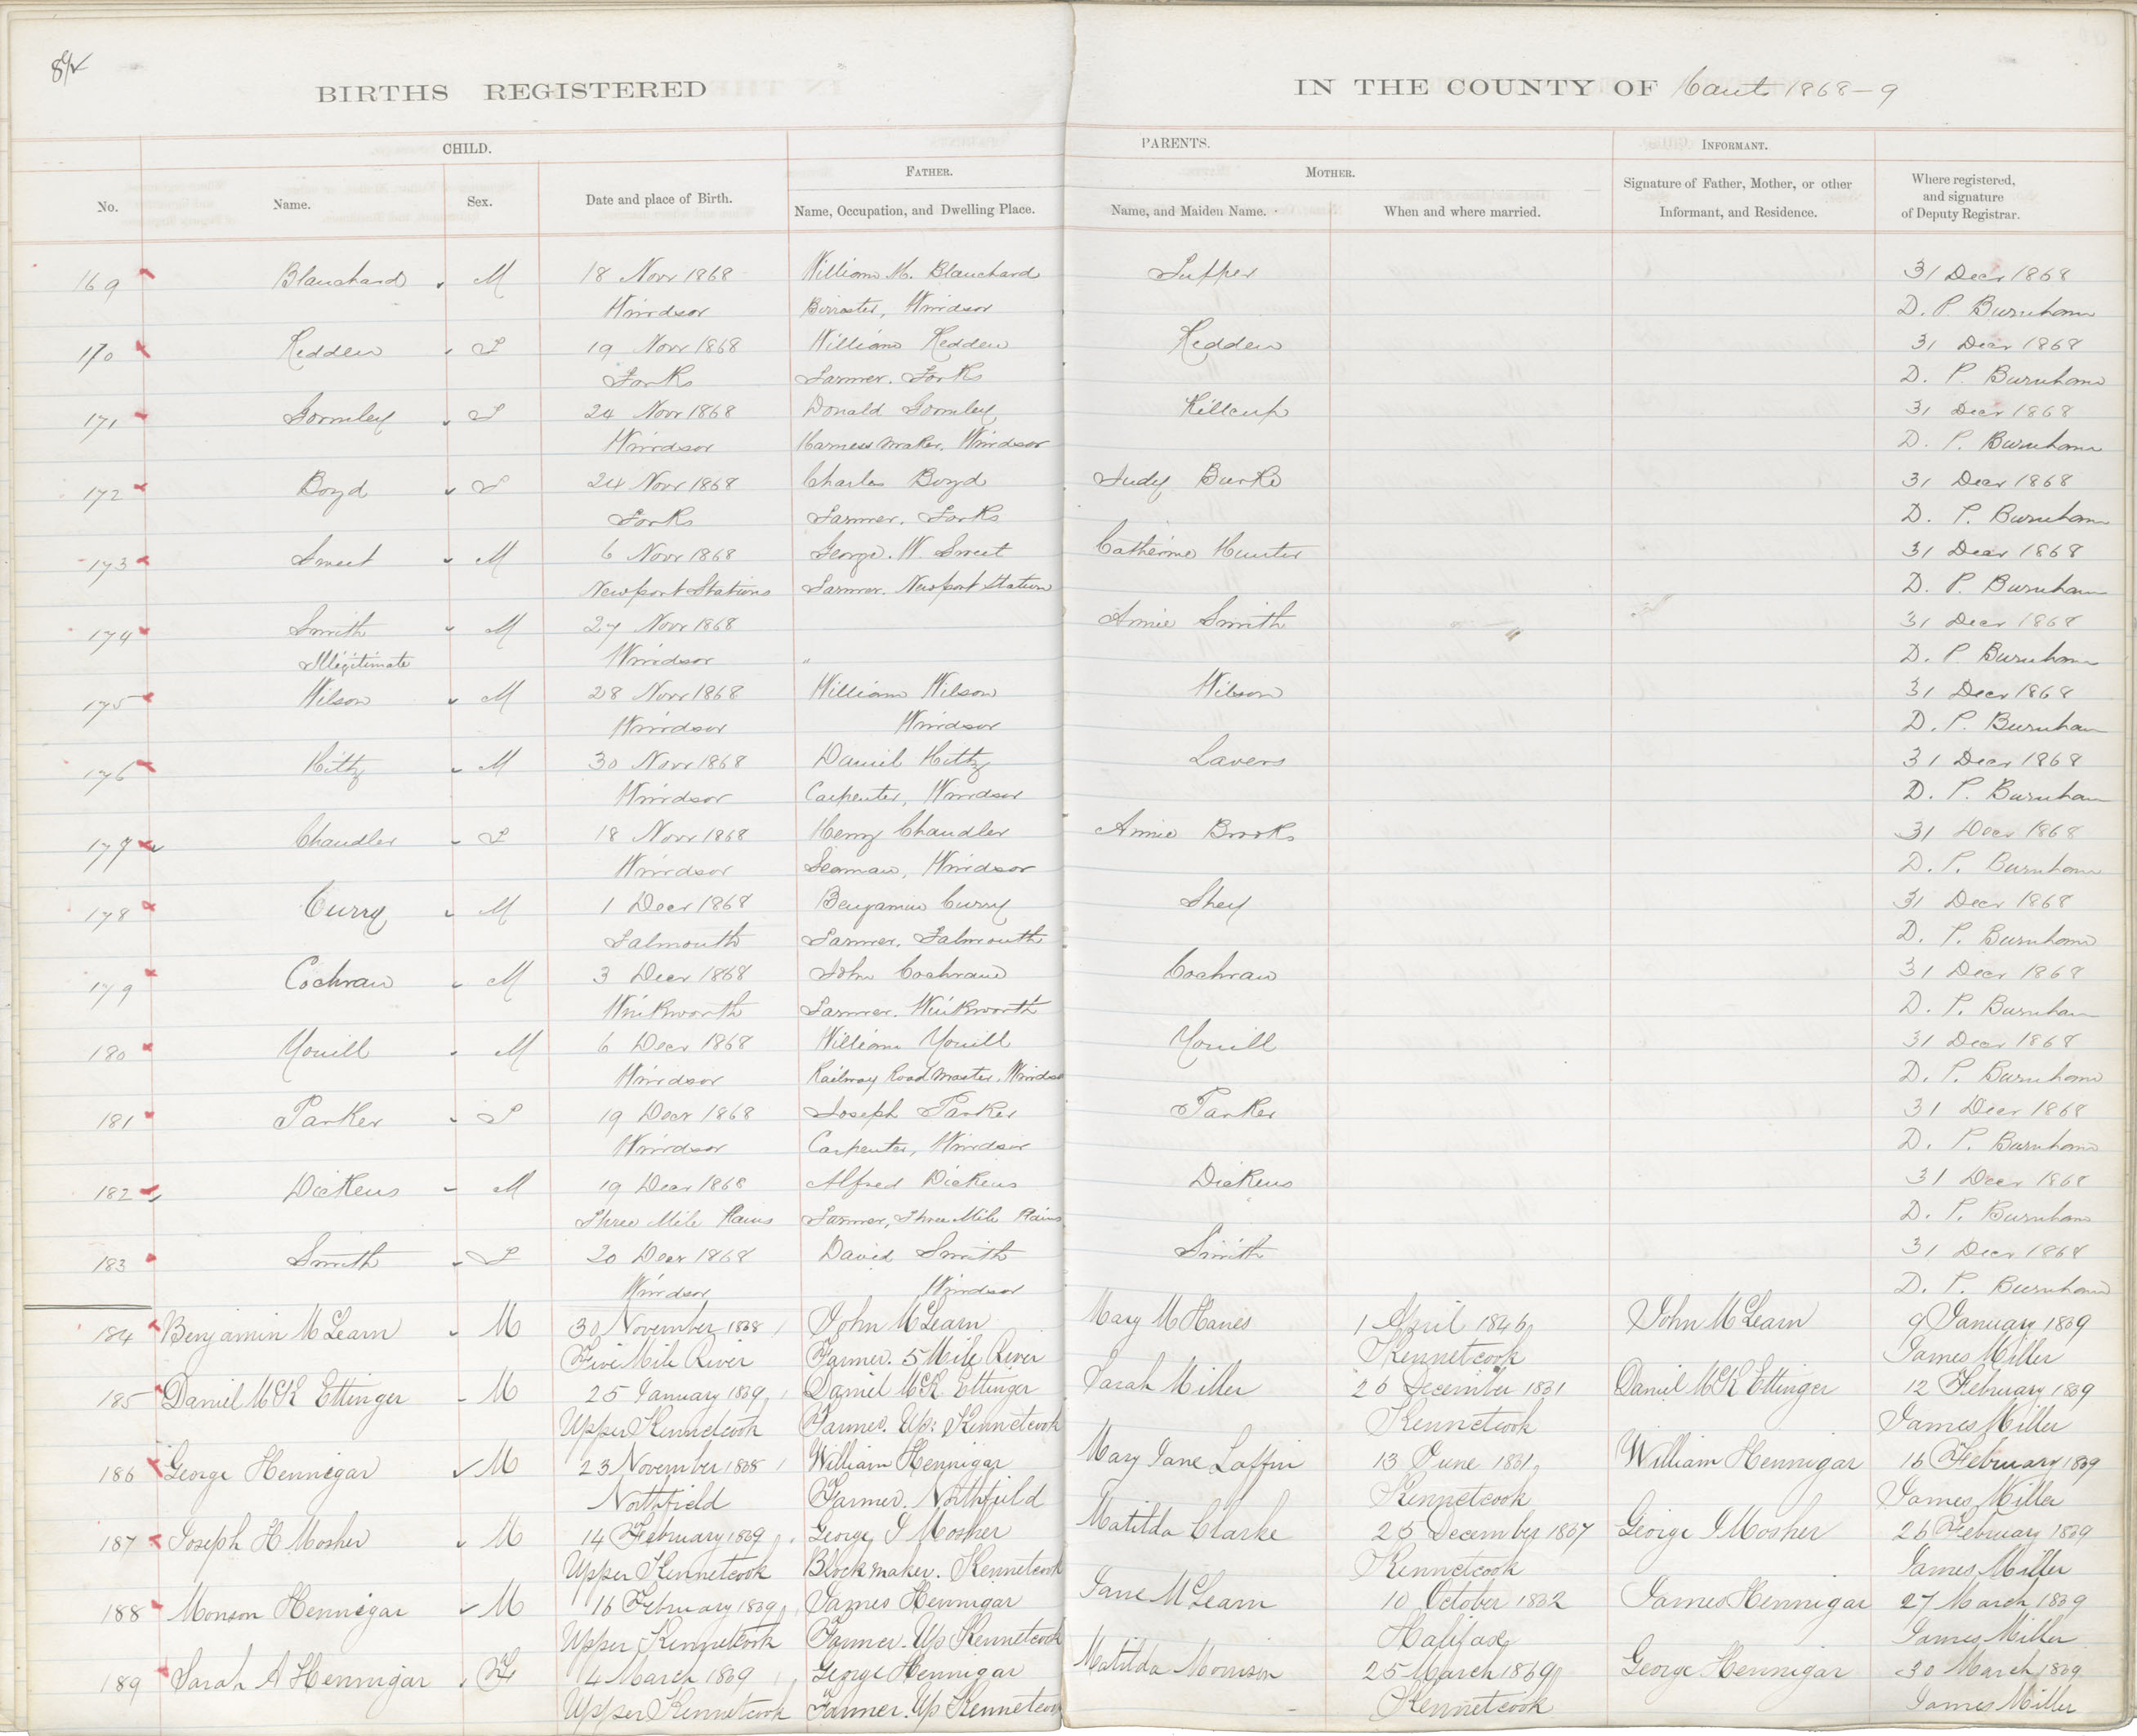 84
BIRTHS REGISTERED IN THE COUNTY OF Hants 1868-9
CHILD. PARENTS. INFORMANT.
No. Name. Sex. Date and place of Birth. FATHER. MOTHER. Signature of Father, Mother, or other Where registered,
Name, Occupation, and Dwelling Place. Name, and Maiden Name. When and where married. Informant, and Residence. and signature
of Deputy Registrar.
169 Blanchard M 18 Novr 1868 William H. Blanchard Supper 31 Decr 1868
Windsor Birraster, Windsor D. P. Burnham
170 Redden F 19 Novr 1868 William Redden Redden 31 Decr 1868
Forks Farmer. Forks D. P. Burnham
171 Gormley F 24 Novr 1868 Donald Gormley Killcup 31 Decr 1868
Windsor Harness maker. Windsor D. P. Burnham
172 Boyd F 24 Novr 1868 Charles Boyd Judy Burke 31 Decr 1868
Forks Farmer. Forks D. P. Burnham
173 Sweet M 6 Novr 1868 George. W Sweet Catherine Hunter 31 Decr 1868
Newport Stations Farmer. Newport Station D. P. Burnham
174 Smith M 27 Novr 1868 Annie Smith 31 Decr 1868
Illegitimate Windsor " D. P. Burnham
175 Wilson M 28 Novr 1868 William Wilson Wilson 31 Decr 1868
Windsor Windsor D. P. Burnham
176 Hiltz M 30 Novr 1868 Daniel Hiltz Lavers 31 Decr 1868
Windsor Carpenter, Windsor D. P. Burnham
177 Chandler F 18 Novr 1868 Henry Chandler Annie Brooks 31 Decr 1868
Windsor Seaman, Windsor D. P. Burnham
178 Curry M 1 Decr 1868 Benjamin Curry Shey 31 Decr 1868
Falmouth Farmer. Falmouth D. P. Burnham
179 Cochran M 3 Decr 1868 John Cochran Cochran 31 Decr 1868
Winkworth Farmer. Winkworth D. P. Burnham
180 Youill M 6 Decr 1868 William Youill Youill 31 Decr 1868
Windsor Railway Road Master. Windsor D. P. Burnham
181 Parker F 19 Decr 1868 Joseph Parker Parker 31 Decr 1868
Windsor Carpenter, Windsor D. P. Burnham
182 Dickens M 19 Decr 1868 Alfred Dickens Dickens 31 Decr 1868
Three Mile Plains Farmer, Three Mile Plains D. P. Burnham
183 Smith F 20 Decr 1868 David Smith Smith 31 Decr 1868
Windsor Windsor D. P. Burnham
184 Benjamin McLearn M 30 November 1868 John McLearn Mary McHanes 1 April 1846 John McLearn 9 January 1869
Five Mile River Farmer. 5 Mile River Kennetcook James Miller
185 Daniel McK Ettinger M 25 January 1869 Daniel McK. Ettinger Sarah Miller 26 December 1861 Daniel McK Ettinger 12 February 1869
Upper Kennetcook Farmer. Up: Kennetcook Kennetcook James Miller
186 George Hennigar M 23 November 1868 William Hennigar Mary Jane Laffin 13 June 1861 William Hennigar 16 February 1869
Northfield Farmer. Northfield Kennetcook James Miller
187 Joseph H Mosher M 14 February 1869 George I Mosher Matilda Clarke 25 December 1867 George I Mosher 26 February 1869
Upper Kennetcook Blockmaker. Kennetcook Kennetcook James Miller
188 Monson Hennigar M 16 February 1869 James Hennigar Jane McLearn 10 October 1862 James Hennigar 27 March 1869
Upper Kennetcook Farmer. Up Kennetcook Halifax James Miller
189 Sarah A Hennigar F 4 March 1869 George Hennigar Matilda Morrison 25 March 1869 George Hennigar 30 March 1869
Upper Kennetcook Farmer. Up Kennetcook Kennetcook James Miller